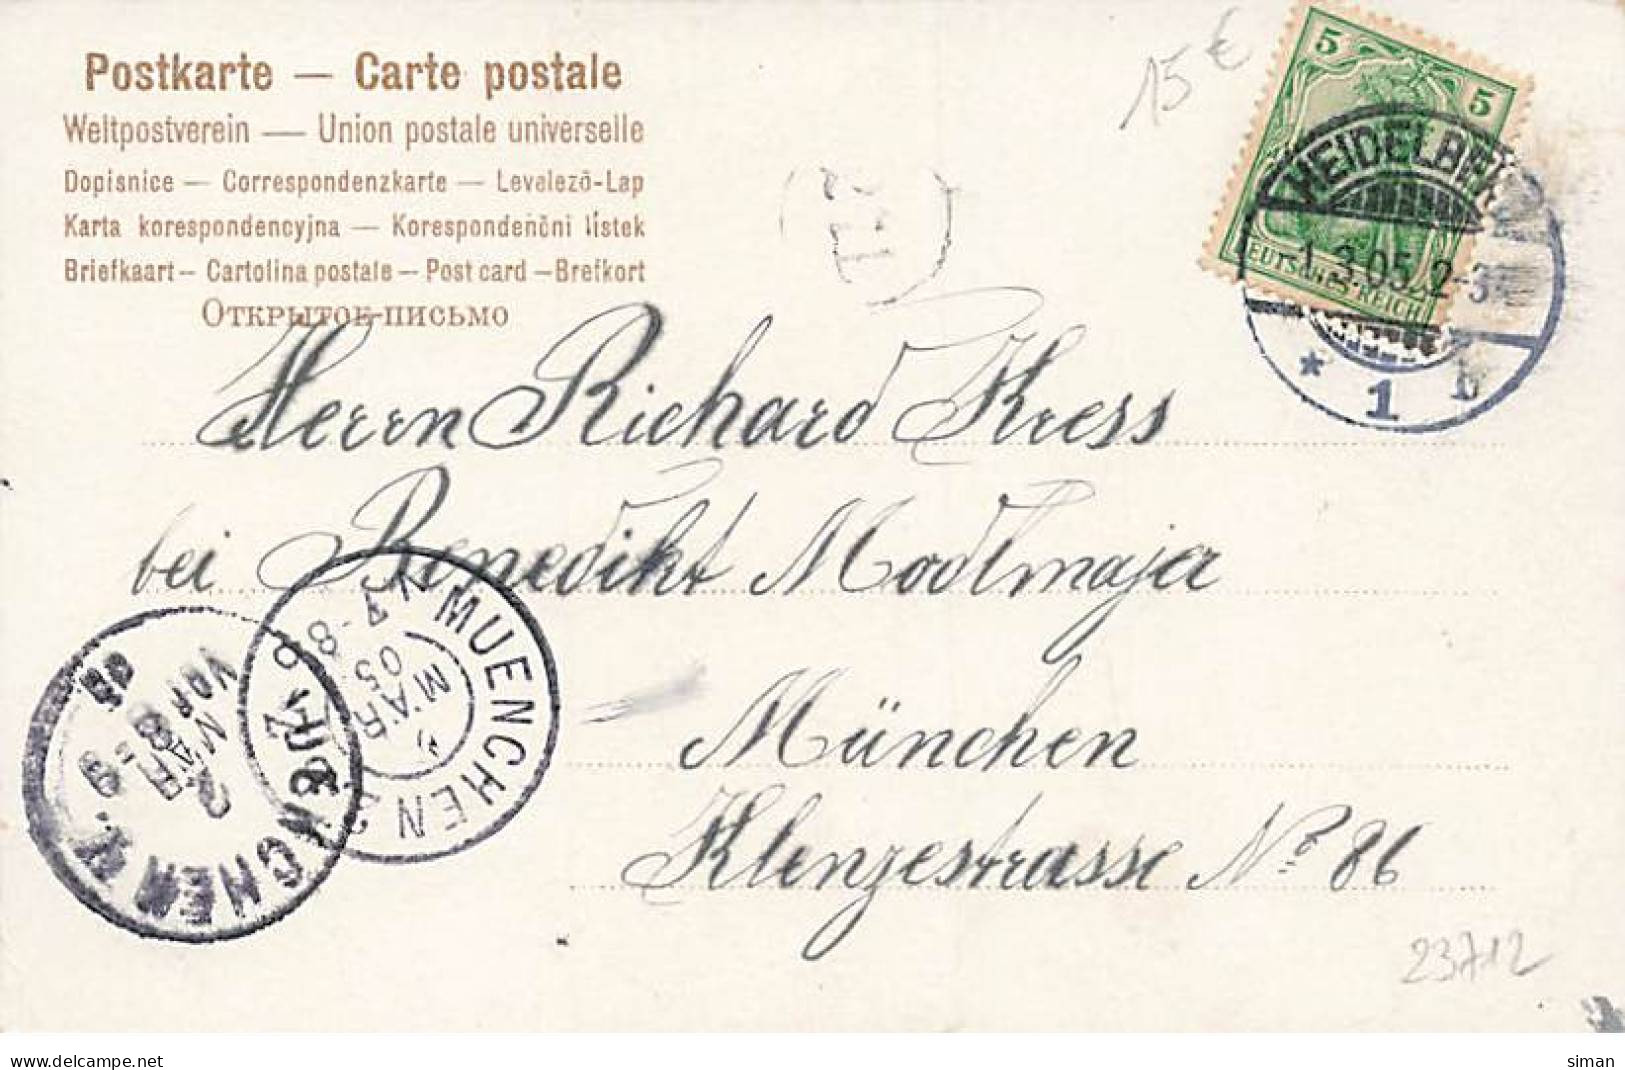 Postkarte — Carte postale
Weltpostverein — Union postale universelle
Dopisnice — Correspondenzkarte — Levelező-Lap
Karta korespondencyjna — Korespondenční lístek
Briefkaart — Cartolina postale — Post card — Brefkort
Открытое письмо
15 €
5 5
HEIDELBERG
1.3.05. 2-3
DEUTSCHES REICH
* 1 b
Herrn Richard Kress
bei Benedikt Modlmajer
München
Klenzestrasse No 86
MUENCHEN
MAR
05
MUENCHEN
MAR
VORM
23712
www.delcampe.net
siman